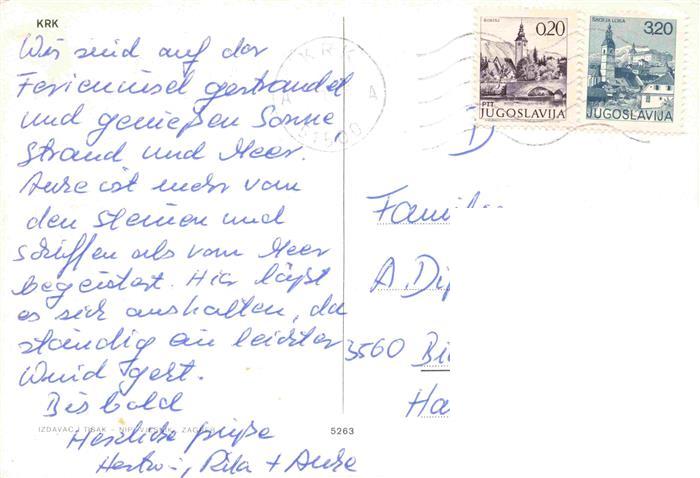 KRK
Wir sind auf der
Ferieninsel gestrandet
und genießen Sonne
Strand und Meer.
Anke ist mehr von
den Steinen und
Schiffen als vom Meer
begeistert. Hier läßt
es sich aushalten, da
ständig ein leichter
Wind geht.
Bis bald
Herzliche Grüße
Rita + Anke
IZDAVAČ I TISAK
ZAGREB
5263
KRK
51500
A
A
BOHINJ
0.20
PTT
JUGOSLAVIJA
ŠKOFJA LOKA
3.20
JUGOSLAVIJA
D
Famil
A. Dip
3560 Bi
Ha